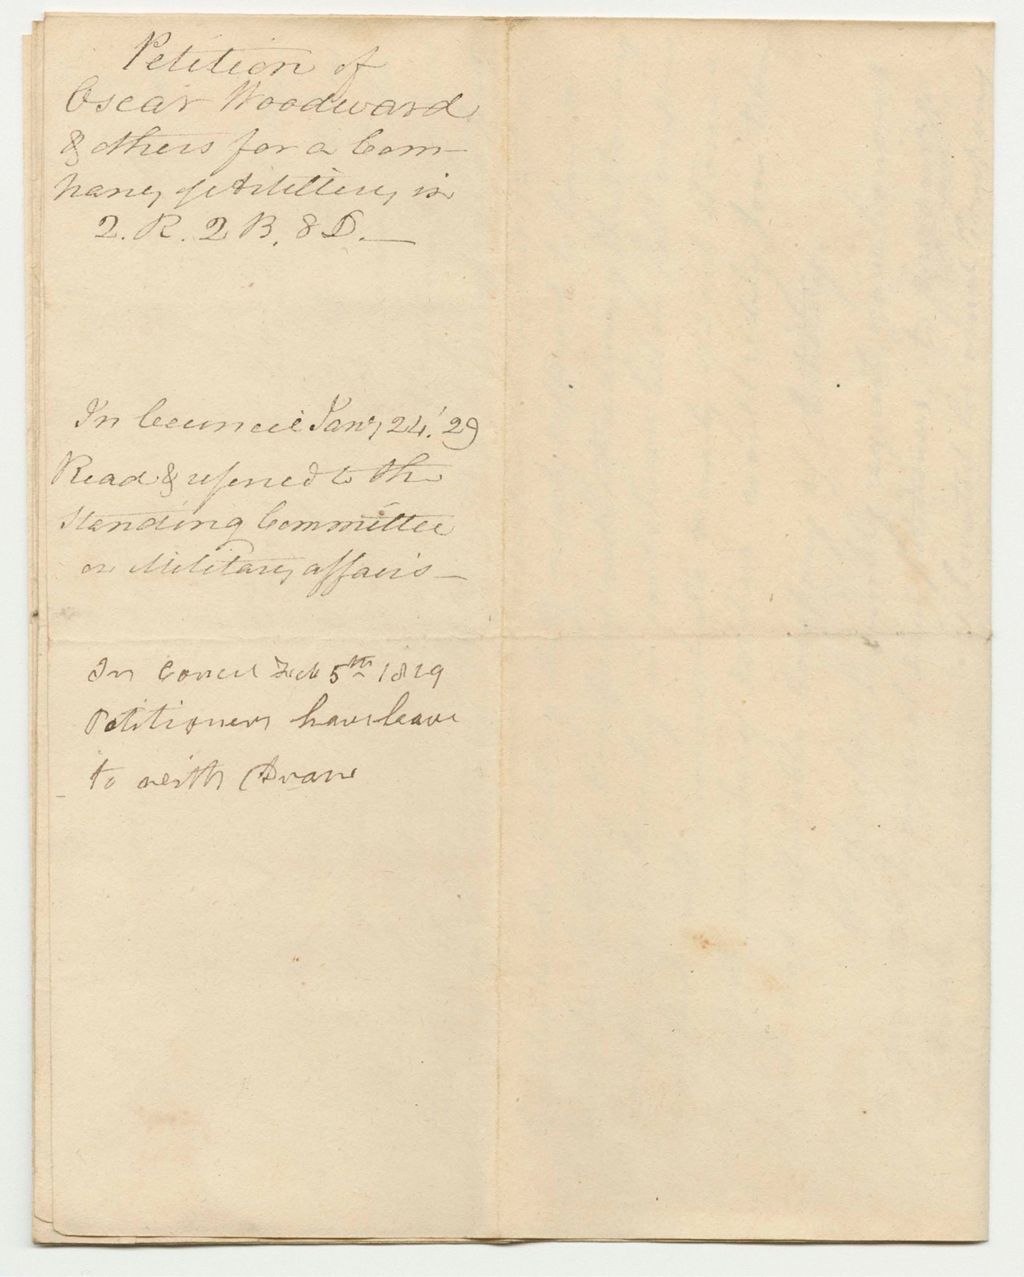 Petition of
Oscar Woodward
& others for a Com-
pany of Artillery in
2. R. 2 B. 8 D.
In Council Jany 24. '29
Read & referred to the
Standing Committee
on Military affairs
In Council Feb 5th 1829
Petitioners have leave
to with Drawe